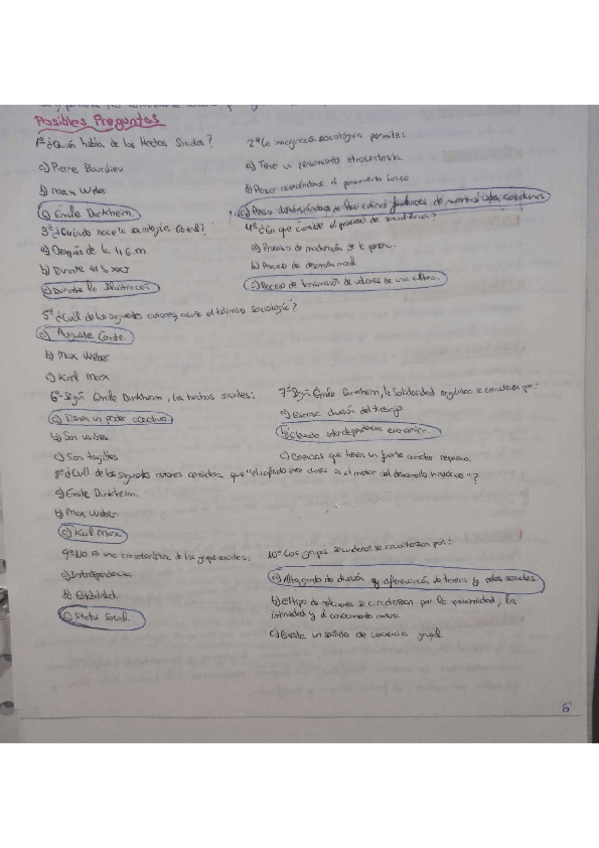 Posibles Preguntas
1º ¿Quién habla de los Hechos Sociales?
a) Pierre Bourdieu
b) Max Weber
c) Émile Durkheim.
2º La imaginación sociológica permite:
a) Tener un pensamiento etnocentrista
b) Pensar el pensamiento único
c) Pensar distanciándonos de las rutinas familiares de nuestras vidas cotidianas
3º ¿Cuándo nace la sociología?
a) Después de la 1 G.M
b) Durante el S XXI
c) Durante la Ilustración
4º ¿En que consiste el proceso de
a) Proceso de maduración de la
b) Proceso de
c) Proceso de transmisión de valores de una cultura.
5º ¿Cuál de los siguientes autores acuñe el término sociología?
a) Auguste Comte.
b) Max Weber
c) Karl Marx
6º Según Émile Durkheim, los hechos sociales:
a) Tienen un poder coercitivo.
b) Son visibles.
c) Son tangibles
7º Según Émile Durkheim, la solidaridad orgánica se caracteriza por:
a) Escasa división del trabajo
b) Elevada interdependencia económica.
c) Creencias que tienen un fuerte carácter represivo.
8º ¿Cuál de los siguientes autores considera que "el conflicto entre clases es el motor del desarrollo histórico"?
a) Émile Durkheim.
b) Max Weber
c) Karl Marx
9º No es una característica de los grupos sociales:
a) Interdependencia
b) Estabilidad.
c) Status Social.
10º Los grupos secundarios se caracterizan por:
a) Alto grado de división y diferenciación de tareas y roles sociales.
b) El tipo de relaciones se caracterizan por la proximidad, la
intimidad y el conocimiento mutuo.
c) Existe un sentido de conciencia grupal
6